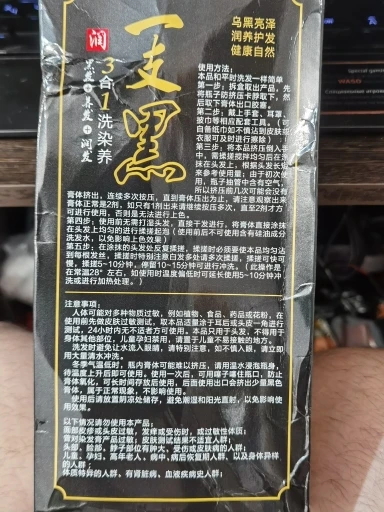 润
黑发+养发+润发
3合1洗染养
一支黑
乌黑亮泽
润养护发
健康自然
使用方法：
本品和平时洗发一样简单
第一步：拆盒取出产品，先
将瓶子防挤压卡掰取下，然
后取下膏体出口胶塞。
第二步：戴上手套、耳罩、
披巾等相应配套工具。（可
自备纸巾如不慎沾到皮肤或
衣服可及时进行擦除）
第三步：将本品挤压倒入手
中，需揉搓搅拌均匀后在涂
抹在头发上，根据头发长短
来参考使用量；由于初次使
用，瓶子抽管中含有空气，
所以挤压前几次可能会没有
膏体挤出，连续多次按压，直到膏体压出为止，请注意观察出来
膏体正常是2剂，如只有1剂出来请继续按压多次，直至2剂才方
可进行使用，否则是无法进行上色。
第四步：使用前无需打湿头发，直接干发进行，将膏体直接涂抹
在头发上均匀的进行揉搓起泡（使用前后不可使用含有硅油成分
洗发水，以免影响上色效果）
第五步：在涂抹的头发处反复揉搓，揉搓时必须要使本品均匀沾
到每根发丝，揉搓时特别注意白发多处请多次揉搓，揉搓时可快可
慢，揉搓5~10分钟，停留10~15分钟可进行冲洗。（此操作是
在常温28°左右，如使用时温度偏低时可延长使用5~10分钟冲
洗或进行加热处理。）
注意事项：
人体可能对多种物质过敏，例如植物、食品、药品或花粉，在
使用前先做皮肤过敏测试，取本品适量涂于耳后或头皮一角进行
测试，24小时内无不适者方可使用。本品只用于头发，不得用于
身体其他部位，儿童孕妇禁用，请置于儿童不易接触的地方。
洗发时避免让水流入眼睛，请特别注意，如不慎入眼，请立即
用大量清水冲洗。
冬季气温低时，瓶内膏体可能难以挤压，请用温水浸泡瓶身，
待温度上升后即可使用。使用一次后，可用棒子塞住瓶口，防止
膏体氧化，可长时间存放后使用，后面使用出口会挤出少量黑色
膏体，属于正常现象，不影响使用。
使用后请放置阴凉处储存，避免潮湿和阳光直射，以免影响使
用效果。
以下情况请勿使用本产品：
面部皮疹或头皮过敏，发痒或受伤时，或过敏性体质；
做对染发膏产品过敏；皮肤测试结果不适宜人群；
头部、脸部、脖子部位有肿大、受伤或皮肤病的人群；
儿童、孕妇、高年老人、病中、病后恢复期人群、以及身体异样
的人群；
体质特异的人群、有肾脏病、血液疾病史人群；